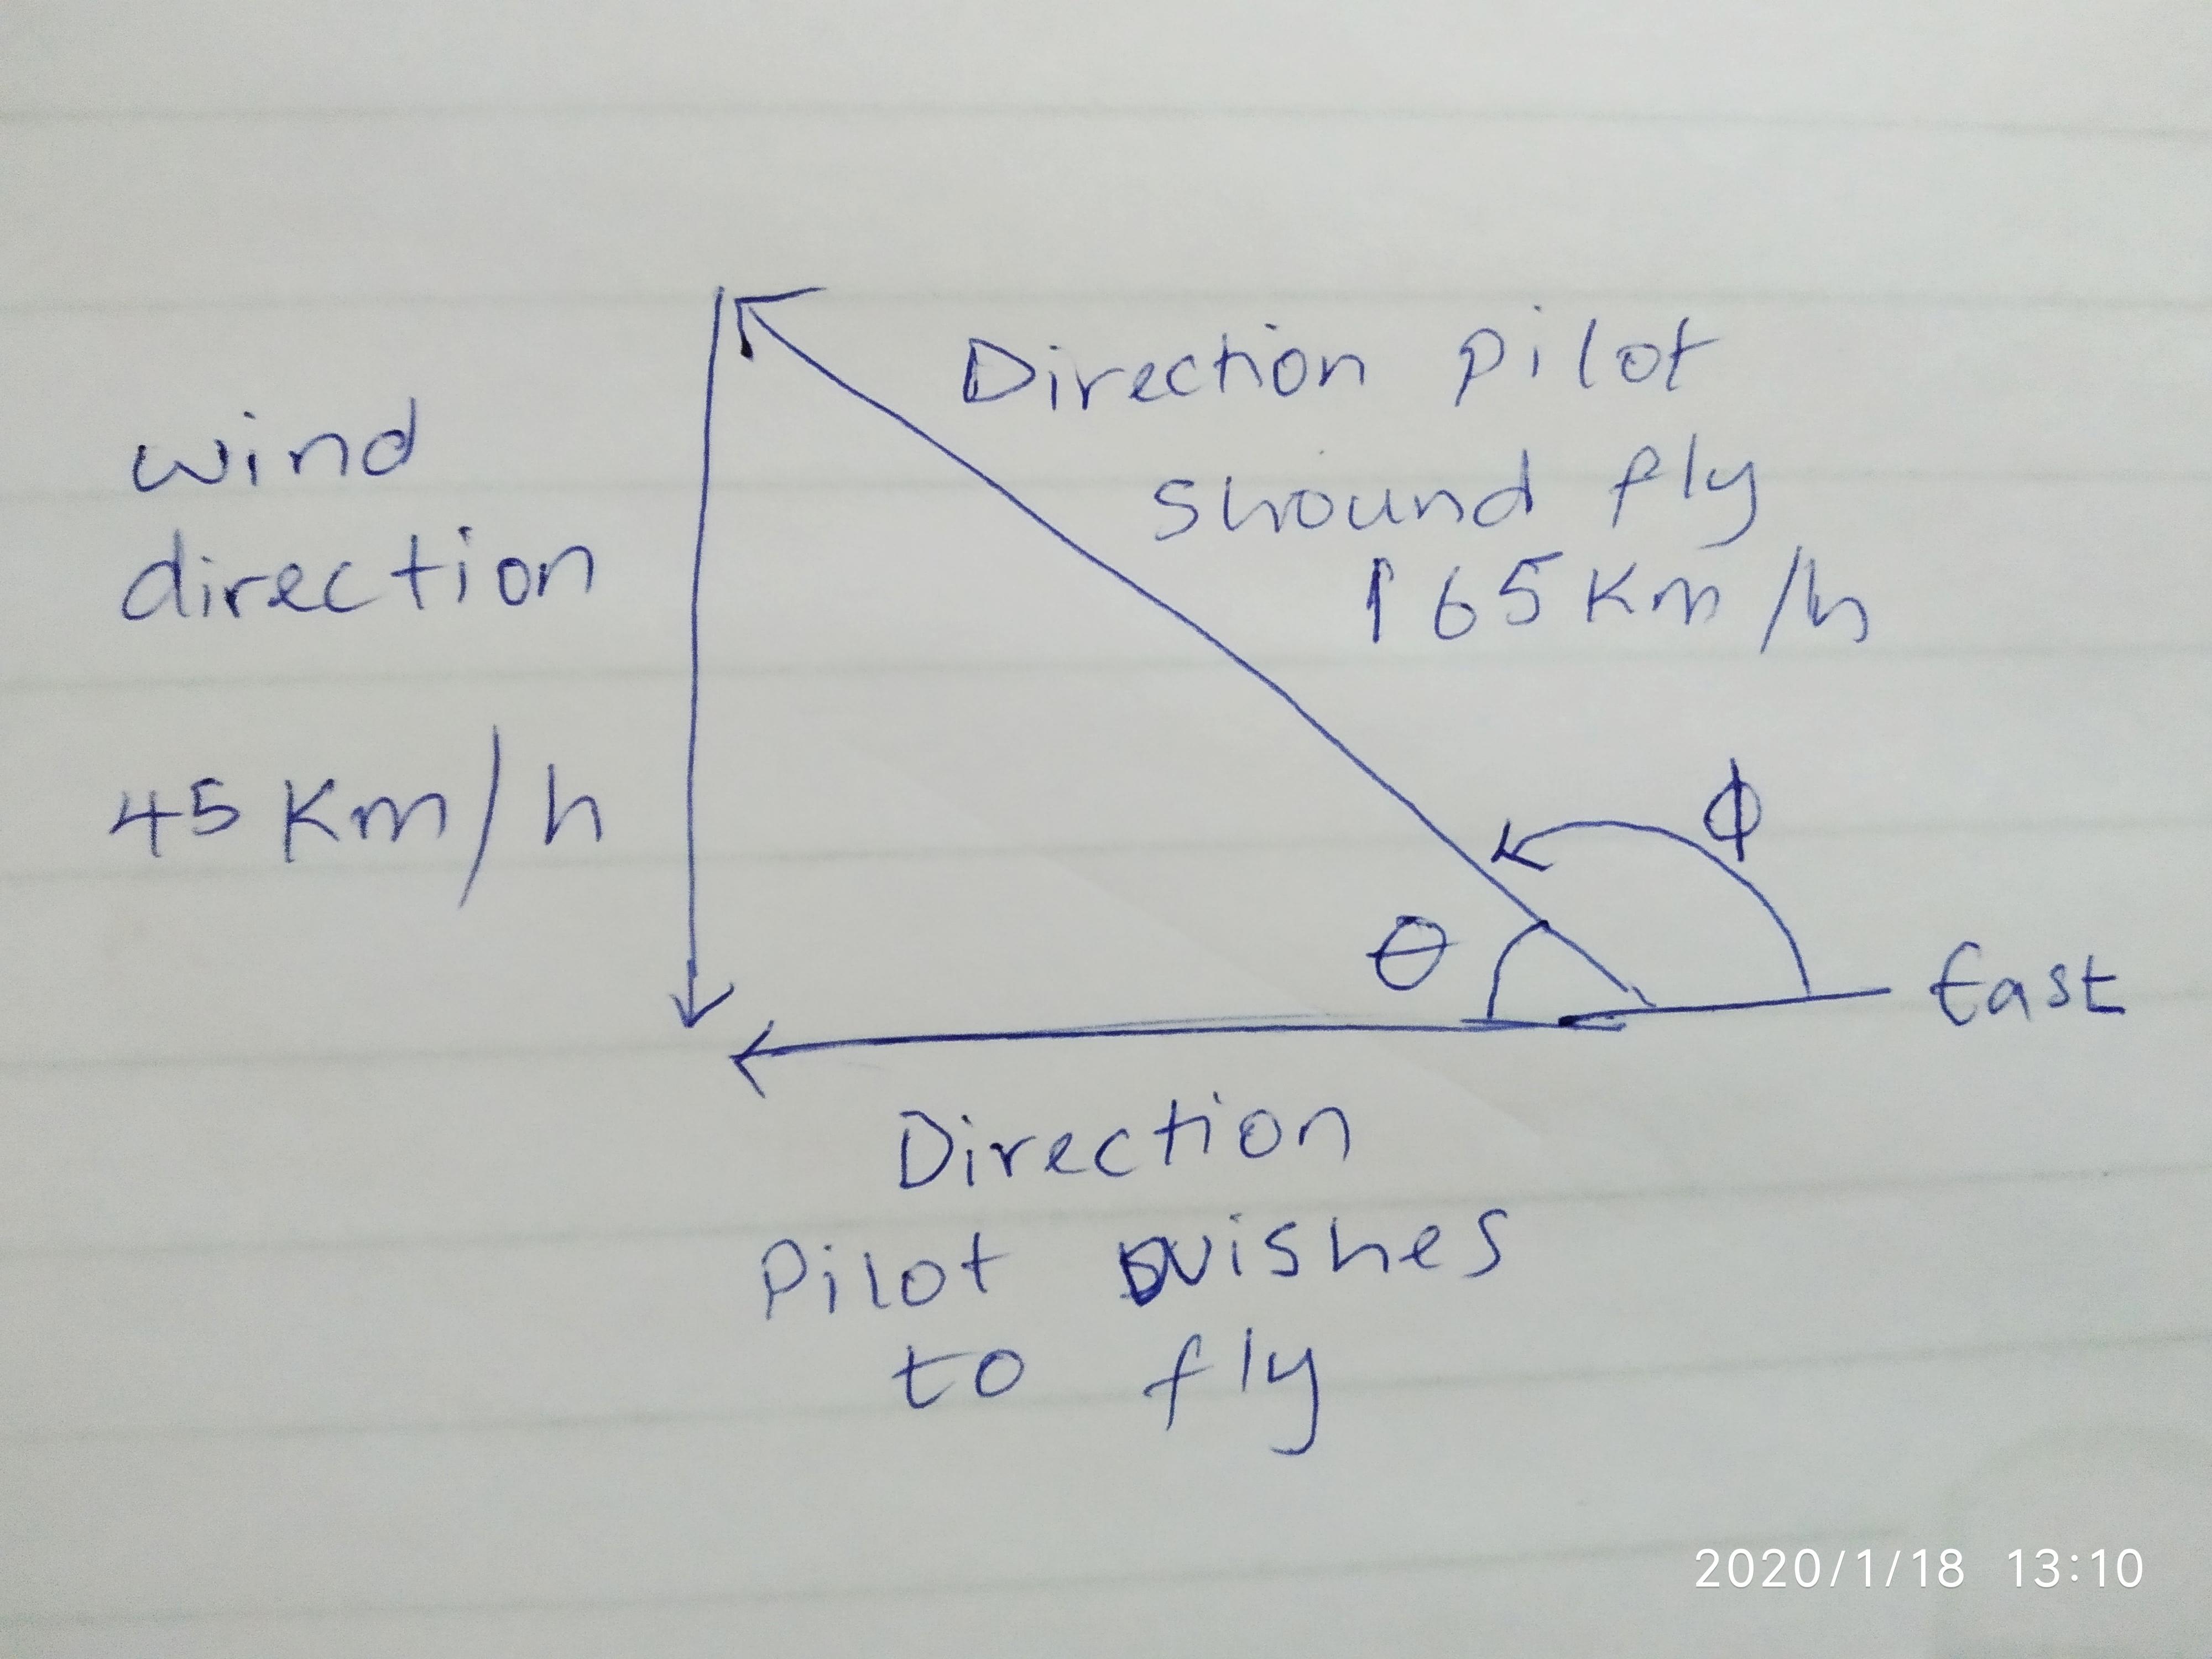 wind
direction
45 Km/h
Direction pilot
shound fly
165 Km/h
θ
ϕ
East
Direction
Pilot wishes
to fly
2020/1/18 13:10